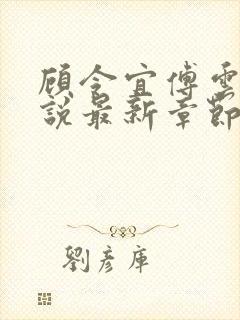 顾令宜傅雲
說最新章節
劉彥庫